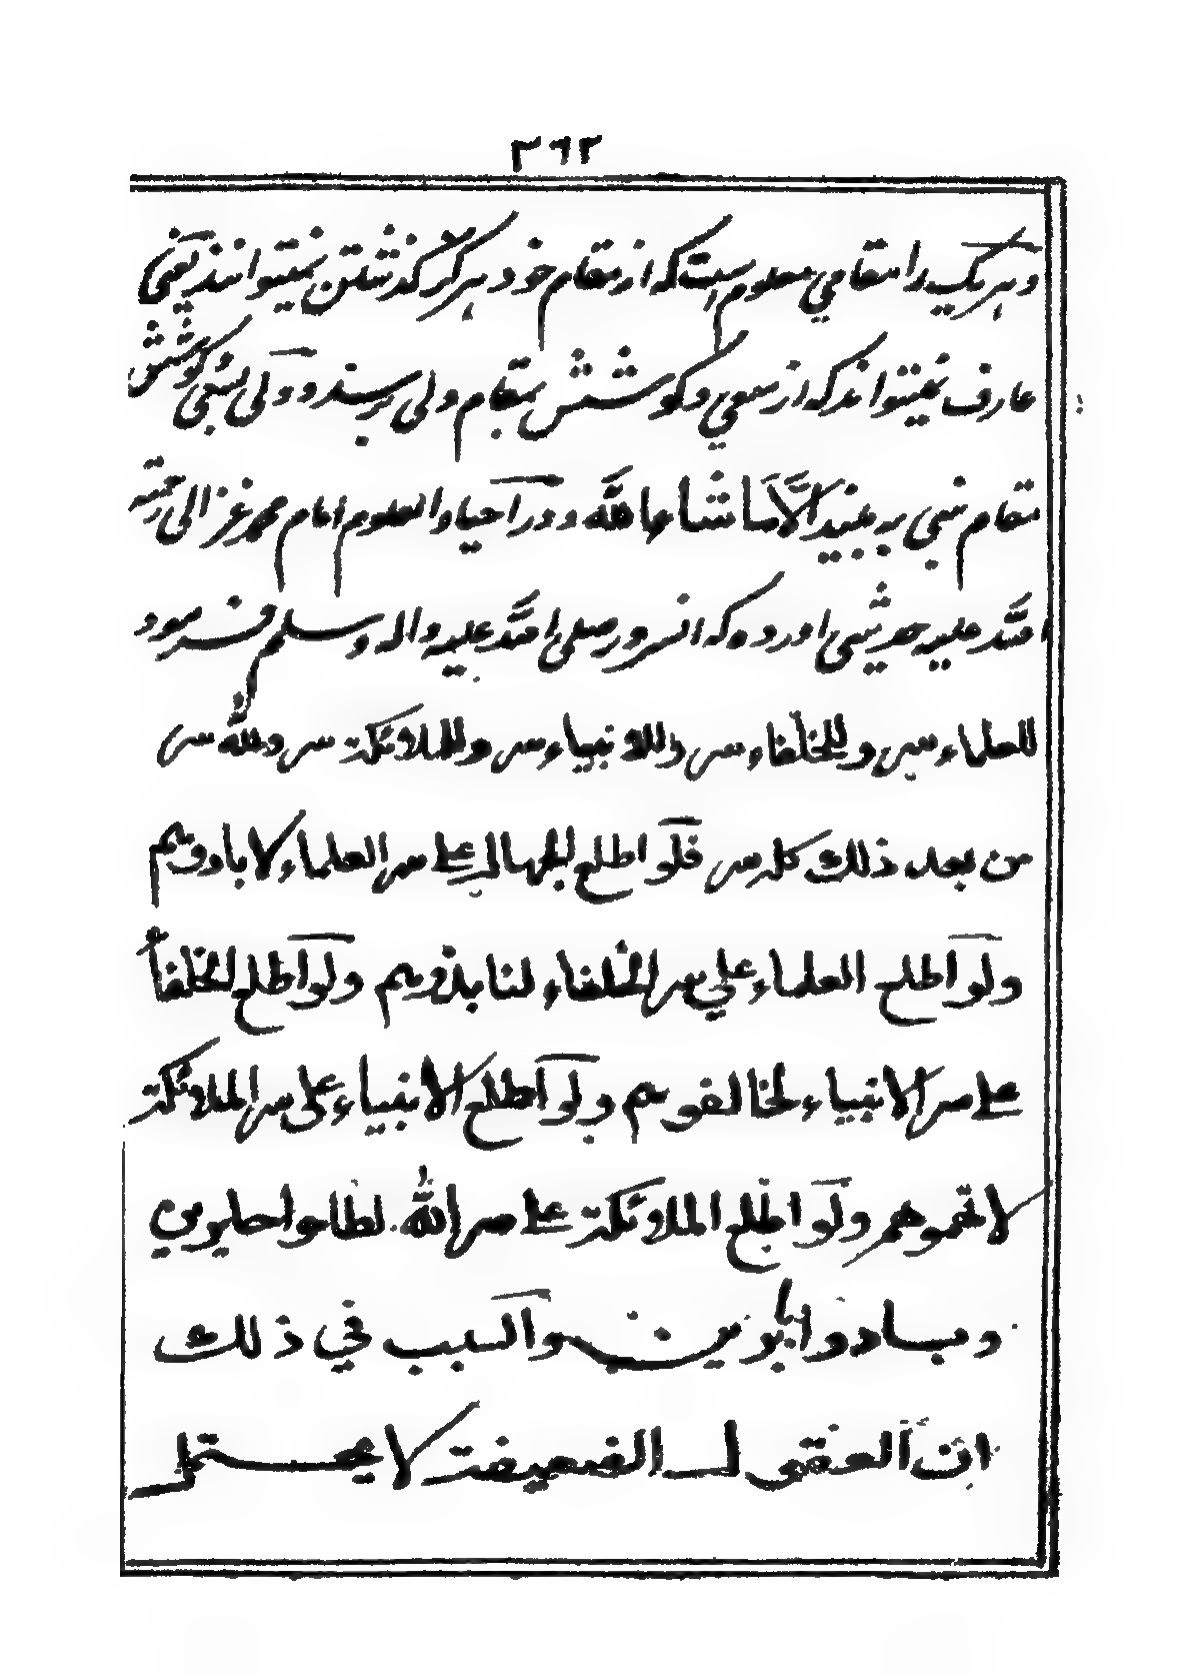 ٣٦٢
وهریک را مقامي معلوم است که از مقام خود هرگز گذشتن نمیتوانند یعني
عارف نمیتواند که از سعي وکوشش بمقام ولی برسد و ولی بسعی کوشش
مقام نبي به بیند الّا ما شاء الله و در احیاء العلوم امام محمد غزالی رحمة
الله علیه حدیثی اورده که انسرور صلی الله علیه واله وسلم فرمود
للعلماء سر وللخلفاء سر وللانبیاء سر وللملائکة سر ولله سر
من بعد ذلك کله سر فلو اطلع الجهال علے سر العلماء لابادوهم
ولو اطلع العلماء علی سر الخلفاء لنابذوهم ولو اطلع الخلفاء
علے سر الانبیاء لخالفوهم ولو اطلع الانبیاء علی سر الملائکة
لاتهموهم ولو اطلع الملائکة علے سر الله لطاحوا حایرین
وبادوا والسبب في ذلك
ان العقول الضعیفة لا یحتمل